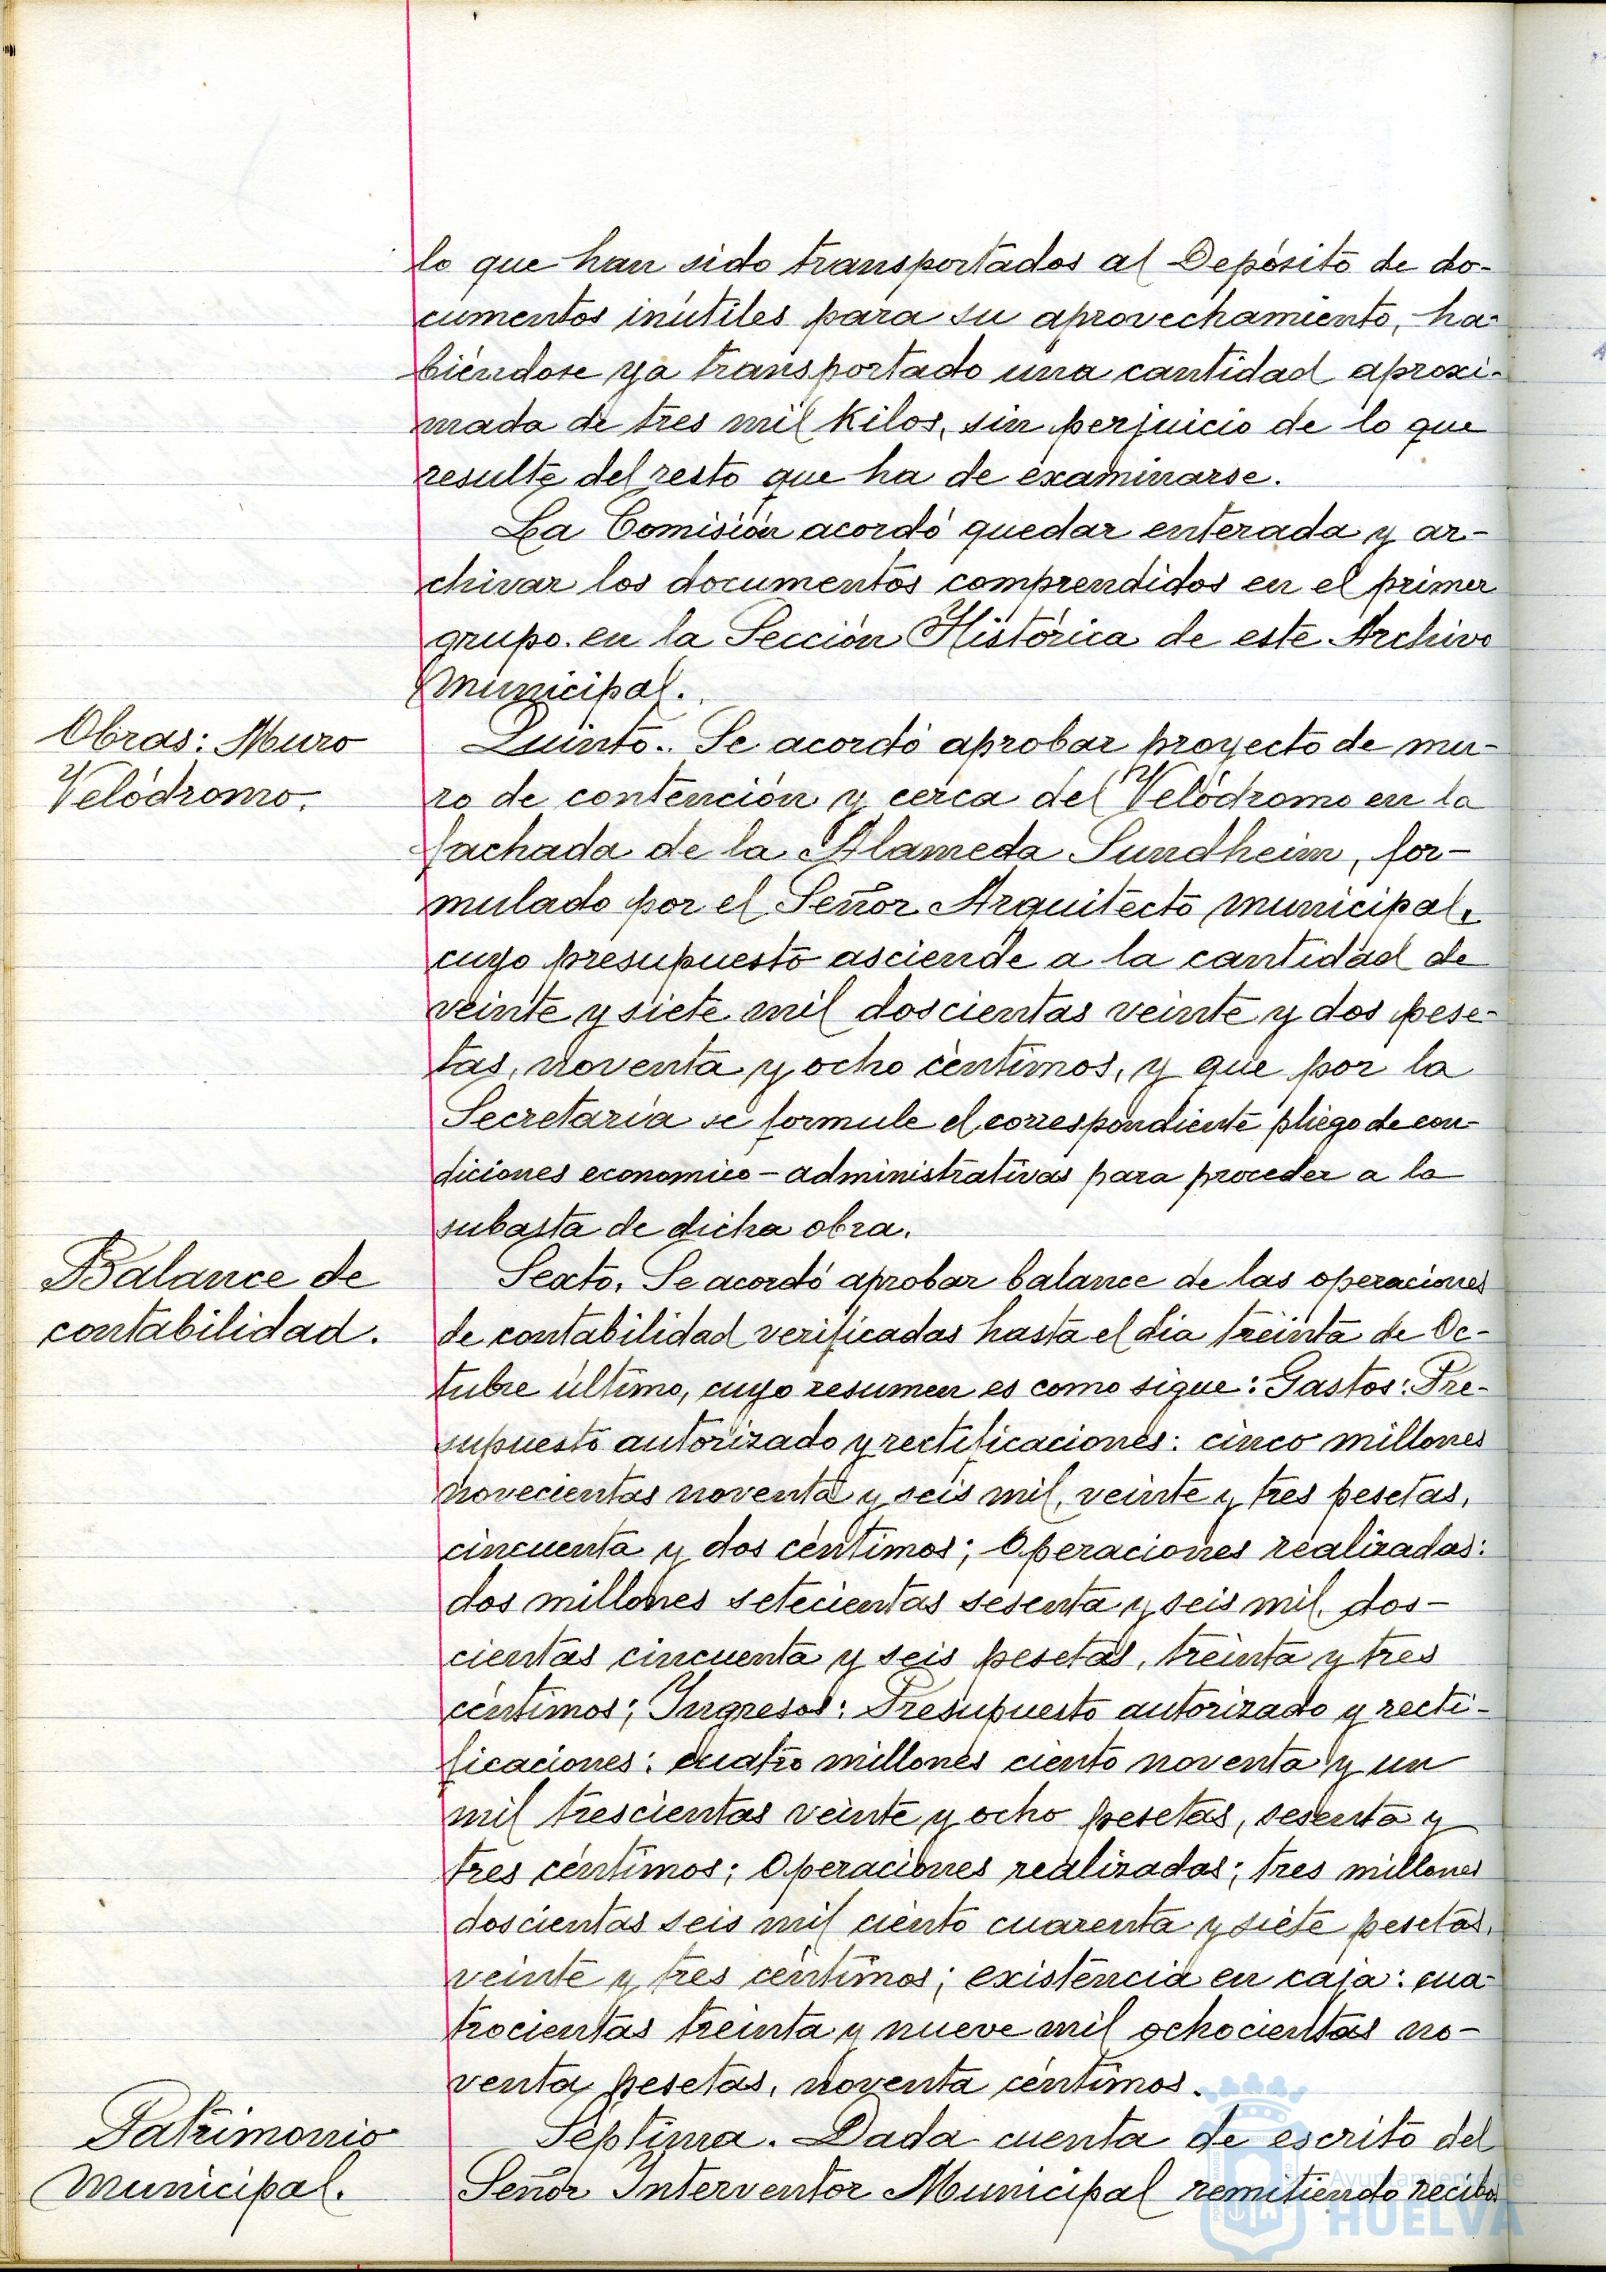 lo que han sido transportados al Depósito de do-
cumentos inútiles para su aprovechamiento, ha-
biéndose ya transportado una cantidad aproxi-
mada de tres mil kilos, sin perjuicio de lo que
resulte del resto que ha de examinarse.
La Comisión acordó quedar enterada y ar-
chivar los documentos comprendidos en el primer
grupo en la Sección Histórica de este Archivo
Municipal.
Obras: Muro
Velódromo.
Quinto. Se acordó aprobar proyecto de mu-
ro de contención y cerca del Velódromo en la
fachada de la Alameda Sundheim, for-
mulado por el Señor Arquitecto municipal,
cuyo presupuesto asciende a la cantidad de
veinte y siete mil doscientas veinte y dos pese-
tas, noventa y ocho céntimos, y que por la
Secretaría se formule el correspondiente pliego de con-
diciones economico-administrativas para proceder a la
subasta de dicha obra.
Balance de
contabilidad.
Sexto. Se acordó aprobar balance de las operaciones
de contabilidad verificadas hasta el día treinta de Oc-
tubre último, cuyo resumen es como sigue: Gastos: Pre-
supuesto autorizado y rectificaciones: cinco millones
novecientas noventa y seis mil, veinte y tres pesetas,
cincuenta y dos céntimos; Operaciones realizadas:
dos millones setecientas sesenta y seis mil, dos-
cientas cincuenta y seis pesetas, treinta y tres
céntimos; Ingresos: Presupuesto autorizado y recti-
ficaciones: cuatro millones ciento noventa y un
mil trescientas veinte y ocho pesetas, sesenta y
tres céntimos; Operaciones realizadas; tres millones
doscientas seis mil ciento cuarenta y siete pesetas,
veinte y tres céntimos; existencia en caja: cua-
trocientas treinta y nueve mil ochocientas no-
venta pesetas, noventa céntimos.
Patrimonio
Municipal.
Séptima. Dada cuenta de escrito del
Señor Interventor Municipal remitiendo recibo
Ayuntamiento de
HUELVA